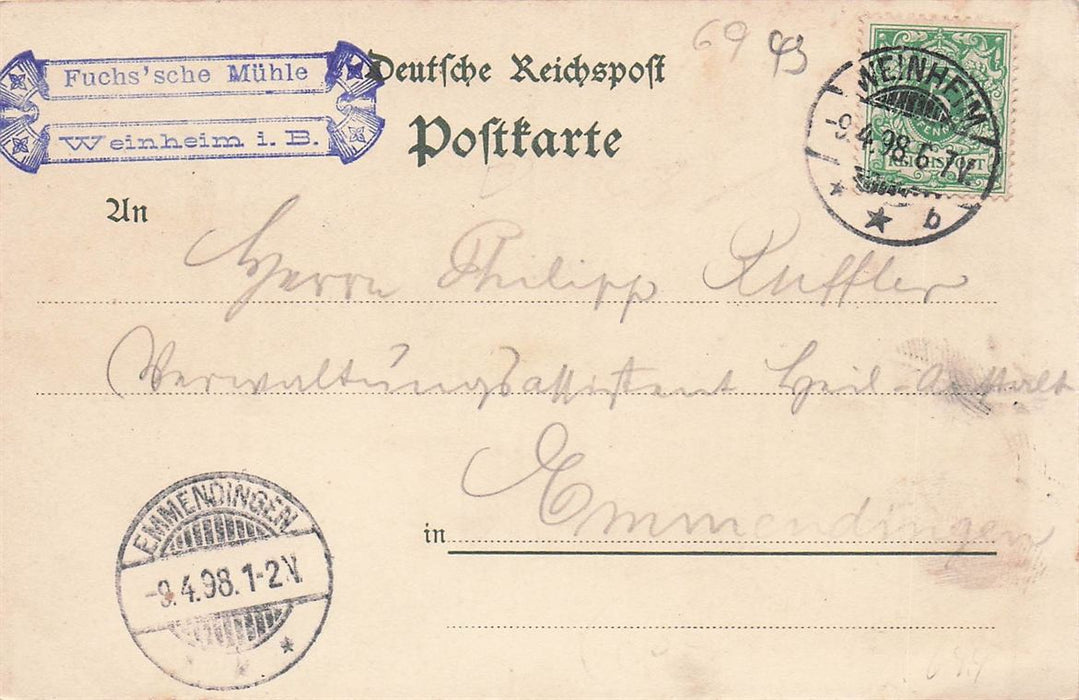 Fuchs'sche Mühle
Weinheim i. B.
Deutsche Reichspost
Postkarte
69 43
WEINHEIM
-9.4.98.6-7V.
b
REICHSPOST
An
Herrn Philipp Ruffler
Verwaltungsassistent Heil-Anstalt
in Emmendingen
EMMENDINGEN
-9.4.98.1-2V.